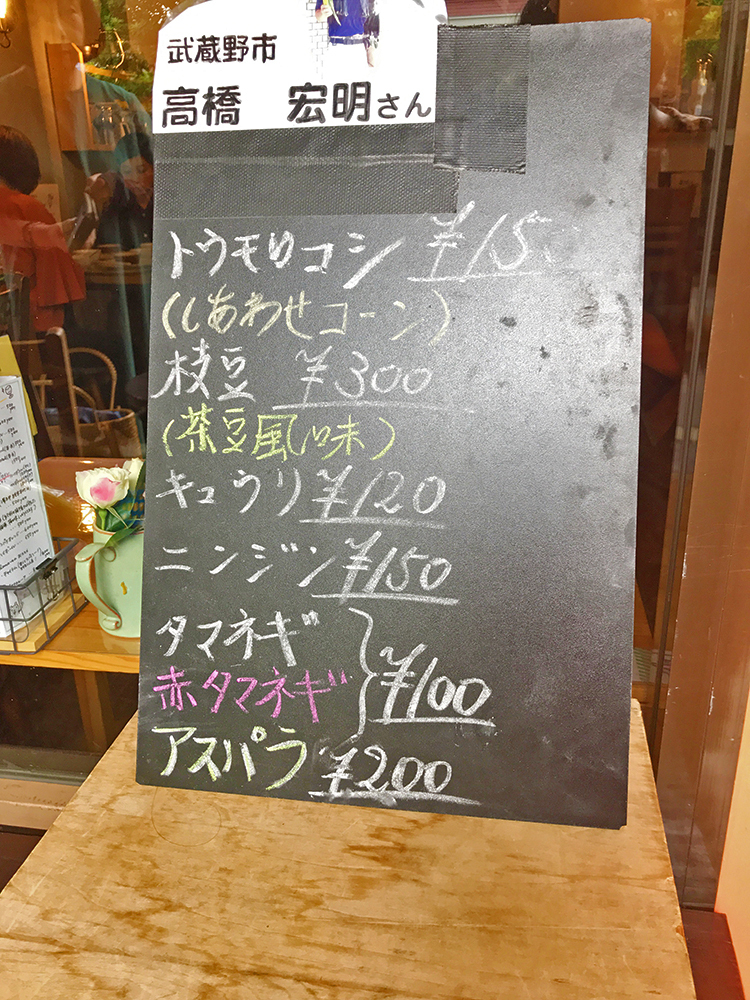 武蔵野市
高橋 宏明さん
トウモロコシ ¥15
(しあわせコーン)
枝豆 ¥300
(茶豆風味)
キュウリ ¥120
ニンジン ¥150
タマネギ
赤タマネギ } ¥100
アスパラ ¥200